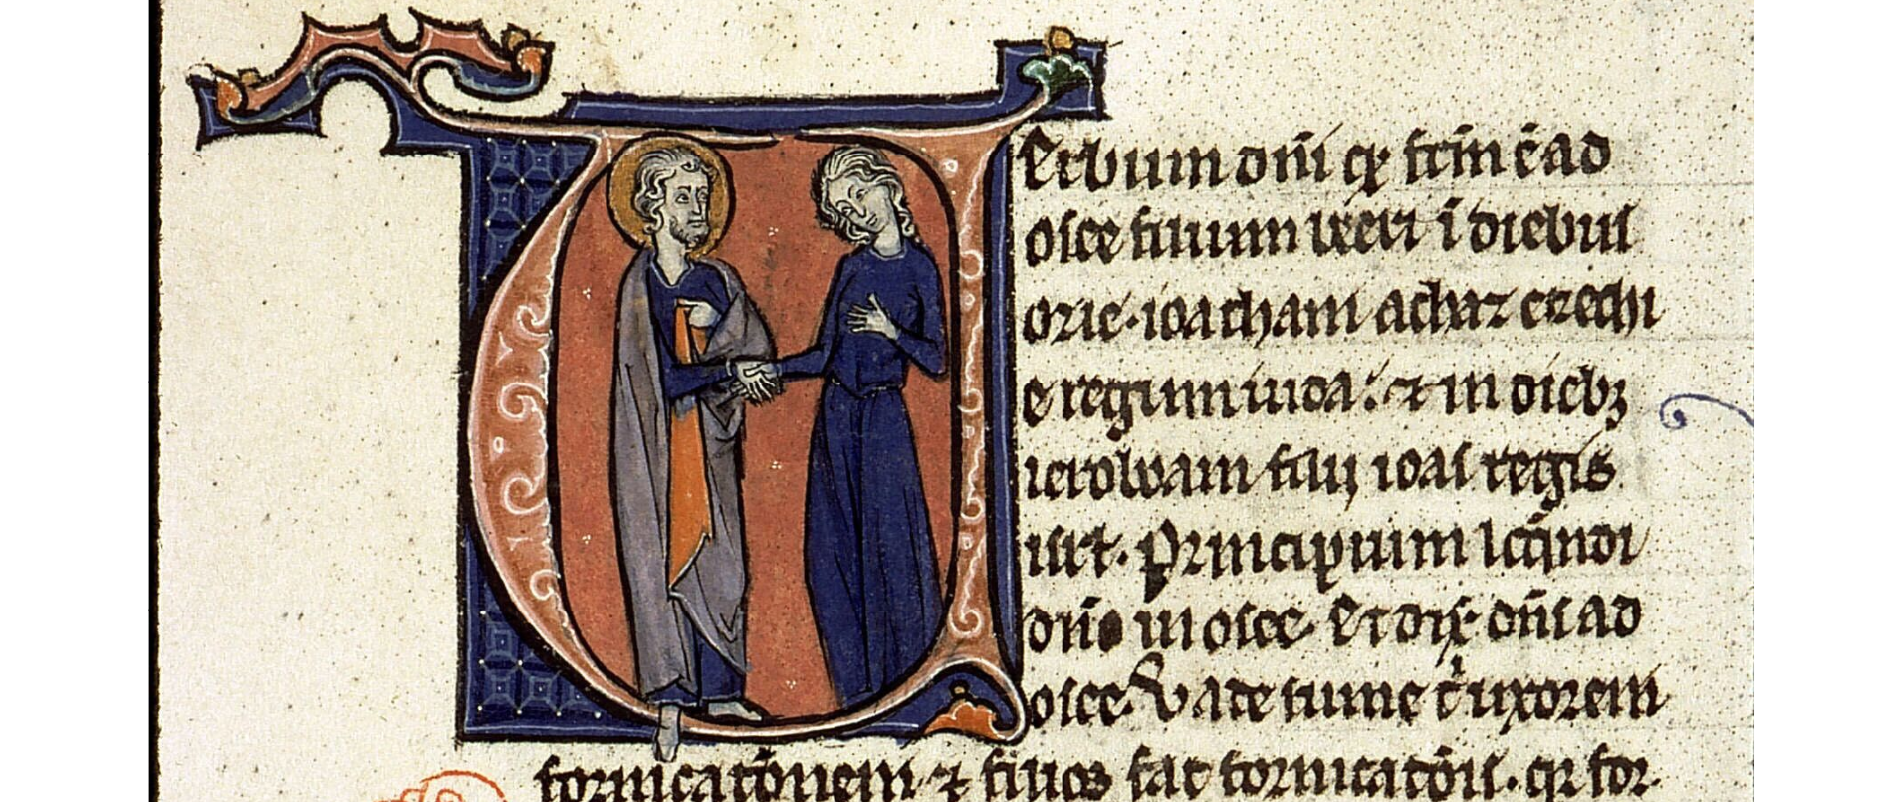 Verbum dn̄i q̄ fc̄m ē ad
osee filium beeri ī diebus
ozie· ioatham achaz ezechi
e regum iuda: ⁊ in dieb3
ieroboam filij ioas regis
isrl̄· Principium loq̄ndi
dn̄o in osee· Et dix̄ dn̄s ad
osee· Vade sume t̄ uxorem
fornicatōnem ⁊ filios fac fornicatōis· q̄r for-